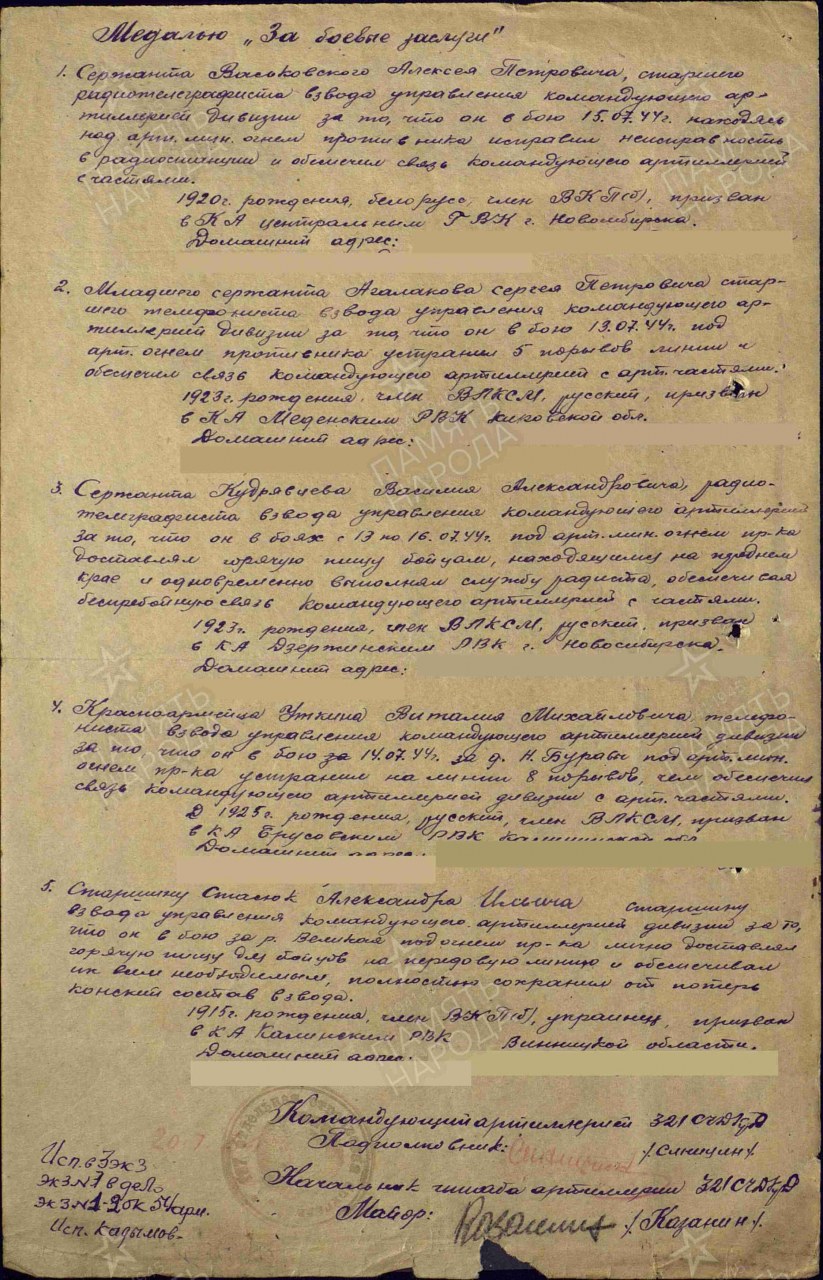 Медалью „За боевые заслуги"
1. Сержанта Васьковского Алексея Петровича, старшего
радиотелеграфиста взвода управления командующего ар-
тиллерией дивизии за то, что он в бою 15.07.44г. находясь
под арт. мин. огнем противника исправил неисправность
в радиостанции и обеспечил связь командующего артиллерией
с частями.
1920г. рождения, белорусс, член ВКП(б), призван
в КА центральным ГВК г. Новосибирска.
Домашний адрес:
2. Младшего сержанта Агалакова Сергея Петровича стар-
шего телефониста взвода управления командующего ар-
тиллерией дивизии за то, что он в бою 13.07.44г. под
арт. огнем противника устранил 5 порывов линии и
обеспечил связь командующего артиллерией с арт. частями.
1923г. рождения, член ВЛКСМ, русский, призван
в КА Меденским РВК Кировской обл.
Домашний адрес:
3. Сержанта Кудрявцева Василия Александровича, радио-
телеграфиста взвода управления командующего артиллерией
за то, что он в боях с 13 по 16.07.44г. под арт. мин. огнем пр-ка
доставлял горячую пищу бойцам, находящимся на переднем
крае и одновременно выполнял службу радиста, обеспечивая
бесперебойную связь командующего артиллерией с частями.
1923г. рождения, член ВЛКСМ, русский, призван
в КА Дзержинским РВК г. Новосибирска.
Домашний адрес:
4. Красноармейца Уткина Виталия Михайловича, телефо-
ниста взвода управления командующего артиллерией дивизии
за то, что он в бою за 14.07.44г. за д. Н. Бураы под арт. мин.
огнем пр-ка устранил на линии 8 порывов, чем обеспечил
связь командующего артиллерией дивизии с арт. частями.
1925г. рождения, русский, член ВЛКСМ, призван
в КА Брусовским РВК Калининской обл.
Домашний адрес:
5. Старшину Стасюк Александра Ильича старшину
взвода управления командующего артиллерией дивизии за то,
что он в бою за р. Великая под огнем пр-ка лично доставлял
горячую пищу для бойцов на передовую линию и обеспечивал
их всем необходимым, полностью сохранил от потерь
конский состав взвода.
1915г. рождения, член ВКП(б), украинец, призван
в КА Калинским РВК Винницкой области.
Домашний адрес:
Командующий артиллерией 321 СЧДКрД
Подполковник: /Синицин/
Начальник штаба артиллерии 321 СЧДКрД
Майор: /Казанин/.
Исп. в 3 экз
экз N3 в дело
экз N 1-2 ОК 54 арм.
Исп. Кадымов.
ПАМЯТЬ
НАРОДА